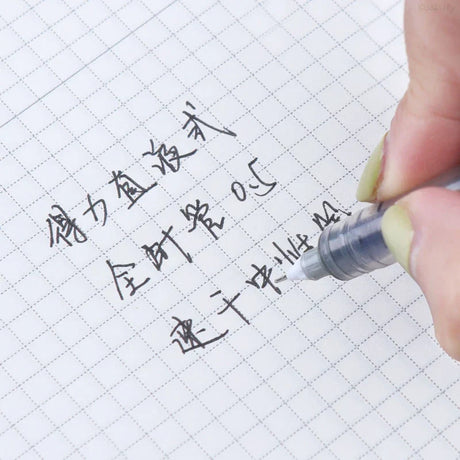 得力直液式
全针管 0.5
速干中性